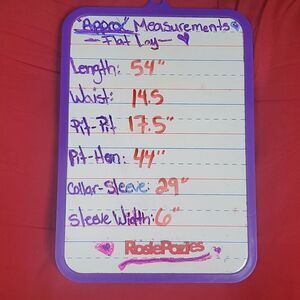 "Approx" Measurements
- Flat Lay -
Length: 54"
Waist: 14.5
Pit-Pit 17.5"
Pit-Hem: 44"
Collar-Sleeve: 29"
Sleeve Width: 6"
RosiePozies